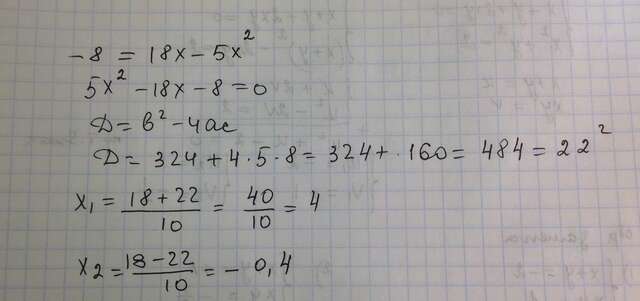 -8 = 18x - 5x²
5x² - 18x - 8 = 0
Д = b² - 4ac
Д = 324 + 4·5·8 = 324 + ·160 = 484 = 22²
x₁ = (18 + 22)/10 = 40/10 = 4
x₂ = (18 - 22)/10 = - 0,4